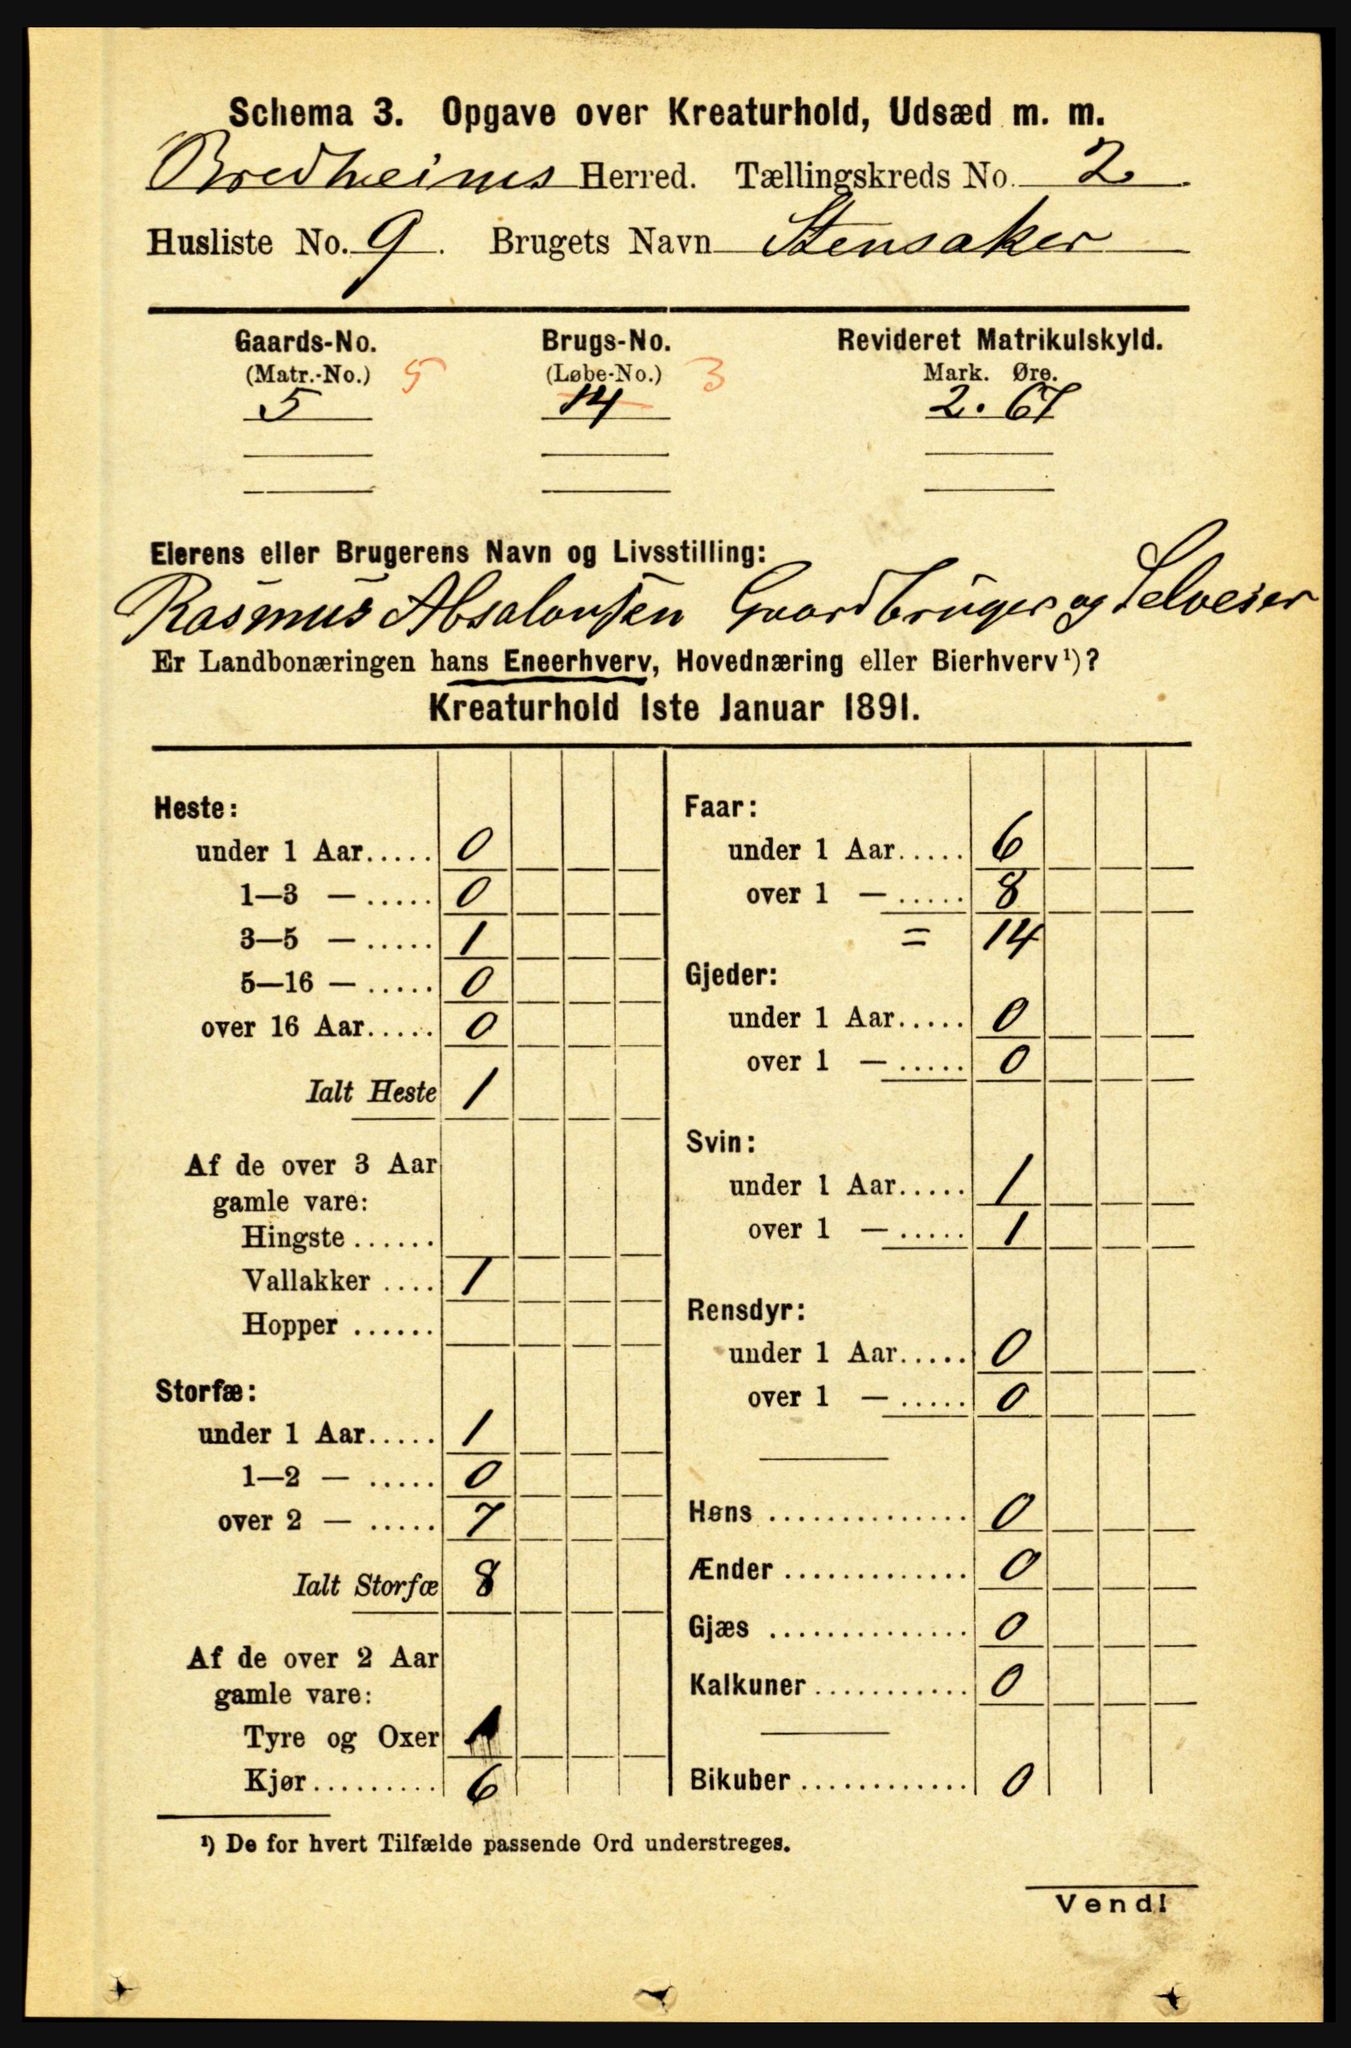 Schema 3. Opgave over Kreaturhold, Udsæd m. m.
Bredheims Herred. Tællingskreds No. 2.
Husliste No. 9. Brugets Navn Stensaker
Gaards-No. Brugs-No. Revideret Matrikulskyld.
(Matr.-No.) 5 (Løbe-No.) 3 Mark. Øre.
5 14 2. 67
Eierens eller Brugerens Navn og Livsstilling:
Rasmus Absalonsen Gaardbruger og Selveier
Er Landbonæringen hans Eneerhverv, Hovednæring eller Bierhverv¹)?
Kreaturhold 1ste Januar 1891.
Heste:
under 1 Aar..... 0
1—3 — ..... 0
3—5 — ..... 1
5—16 — ..... 0
over 16 Aar..... 0
Ialt Heste 1
Af de over 3 Aar
gamle vare:
Hingste ......
Vallakker .... 1
Hopper ......
Storfæ:
under 1 Aar..... 1
1—2 — ..... 0
over 2 — ..... 7
Ialt Storfæ 8
Af de over 2 Aar
gamle vare:
Tyre og Oxer 1
Kjør......... 6
Faar:
under 1 Aar..... 6
over 1 — ..... 8
= 14
Gjeder:
under 1 Aar..... 0
over 1 — ..... 0
Svin:
under 1 Aar..... 1
over 1 — ..... 1
Rensdyr:
under 1 Aar..... 0
over 1 — ..... 0
Høns .............. 0
Ænder ............. 0
Gjæs .............. 0
Kalkuner ........... 0
Bikuber ............ 0
¹) De for hvert Tilfælde passende Ord understreges.
Vend!